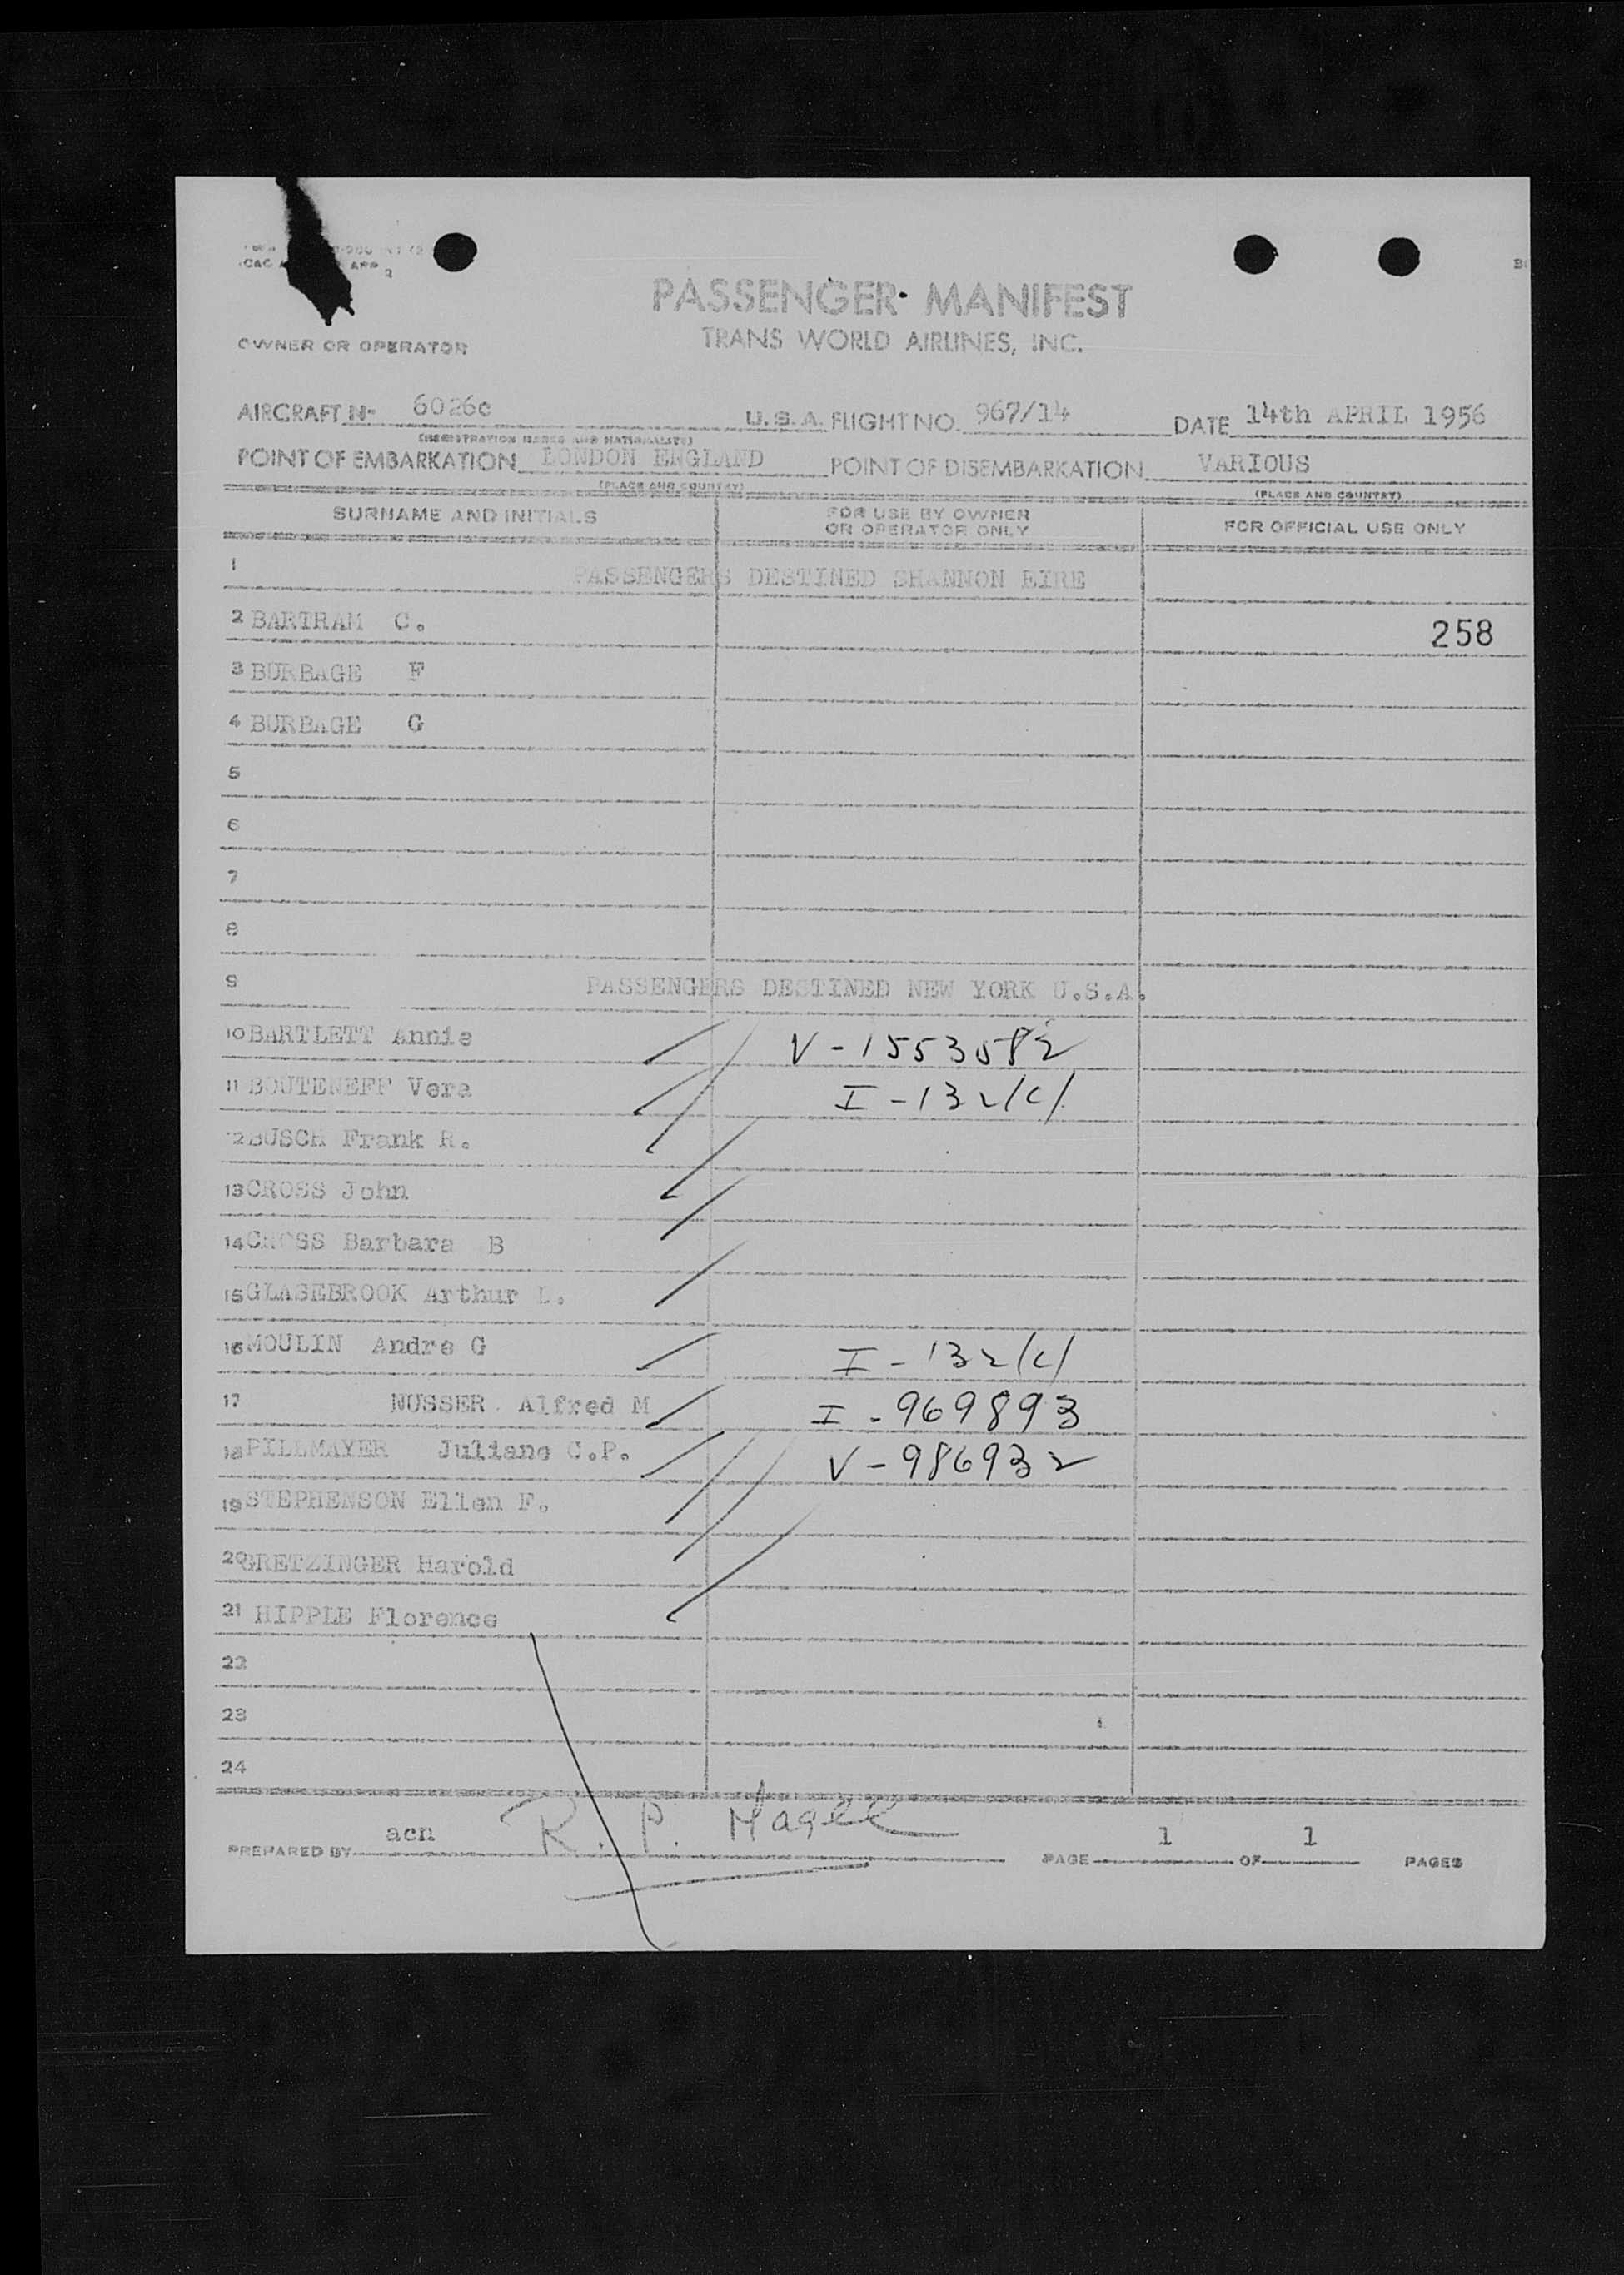 PASSENGER MANIFEST
TRANS WORLD AIRLINES, INC.
OWNER OR OPERATOR
AIRCRAFT No 6026c U.S.A. FLIGHT NO. 967/14 DATE 14th APRIL 1956
(REGISTRATION MARKS AND NATIONALITY)
POINT OF EMBARKATION LONDON ENGLAND POINT OF DISEMBARKATION VARIOUS
(PLACE AND COUNTRY) (PLACE AND COUNTRY)
SURNAME AND INITIALS FOR USE BY OWNER OR OPERATOR ONLY FOR OFFICIAL USE ONLY
1 PASSENGERS DESTINED SHANNON EIRE
2 BARTRAM C. 258
3 BURBAGE F
4 BURBAGE G
5
6
7
8
9 PASSENGERS DESTINED NEW YORK U.S.A.
10 BARTLETT Annie V-1553582
11 BOUTENEFF Vera I-132/c/
12 BUSCH Frank R.
13 CROSS John
14 CROSS Barbara B
15 GLASEBROOK Arthur L.
16 MOULIN Andre G I-132/c/
17 NUSSER Alfred M I-969893
18 PILLMAYER Juliane C.P. V-986932
19 STEPHENSON Ellen F.
20 GRETZINGER Harold
21 HIPPLE Florence
22
23
24
PREPARED BY acn R. P. Magee PAGE 1 OF 1 PAGES